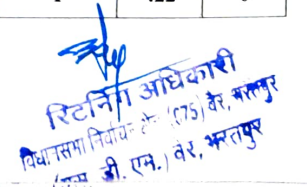 रिटर्निंग अधिकारी
विधानसभा निर्वाचन क्षेत्र (075) वैर, भरतपुर
(एस. डी. एम.) वैर, भरतपुर